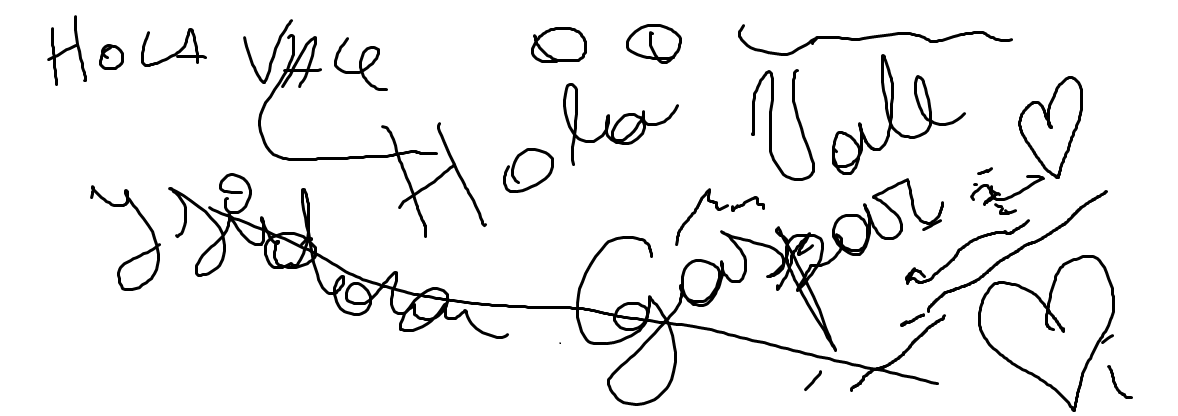 HOLA VALE
Hola Vale
Ysidora Gaspar